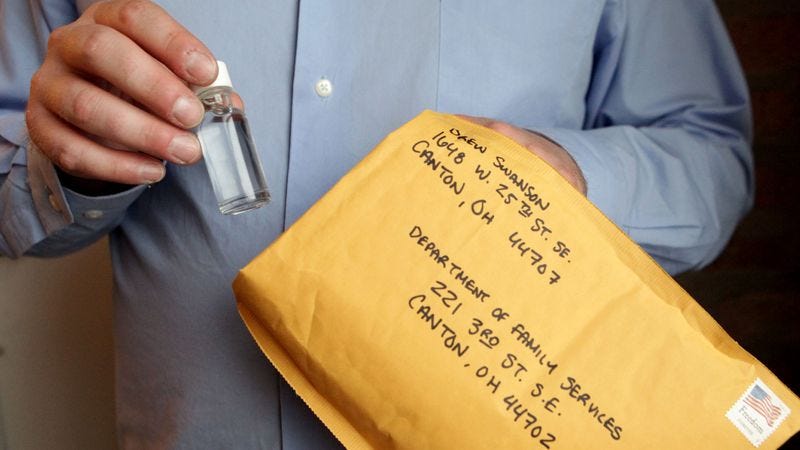 DREW SWANSON
1648 W. 25TH ST. SE.
CANTON, OH 44707
DEPARTMENT OF FAMILY SERVICES
221 3RD ST. S.E.
CANTON, OH 44702
Freedom